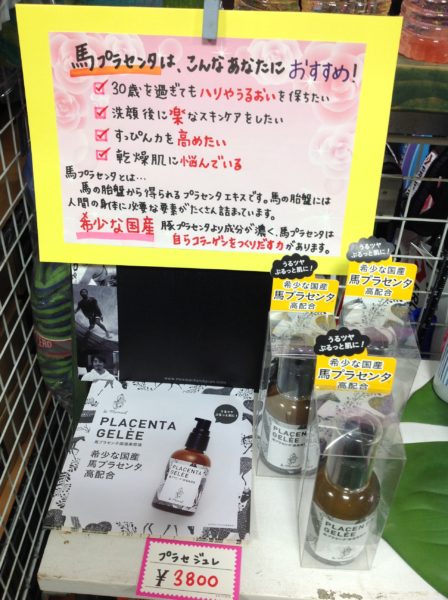 馬プラセンタは、こんなあなたにおすすめ!
30歳を過ぎてもハリやうるおいを保ちたい
洗顔後に楽なスキンケアをしたい
すっぴん力を高めたい
乾燥肌に悩んでいる
馬プラセンタとは…
馬の胎盤から得られるプラセンタエキスです。馬の胎盤には
人間の身体に必要な要素がたくさん詰まっています。
希少な国産 豚プラセンタより成分が濃く、馬プラセンタは
自らコラーゲンをつくりだす力があります。
PLACENTA
GELÉE
希少な国産
馬プラセンタ
高配合
PLACENTA
GELÉE
プラセジュレ
¥3800
うるツヤ
ぷるっと肌に!
希少な国産
馬プラセンタ
高配合
うるツヤ
ぷるっと肌に!
希少な国産
馬プラセンタ
高配合
PLACENTA
GELÉE
PLACENTA
GELÉE